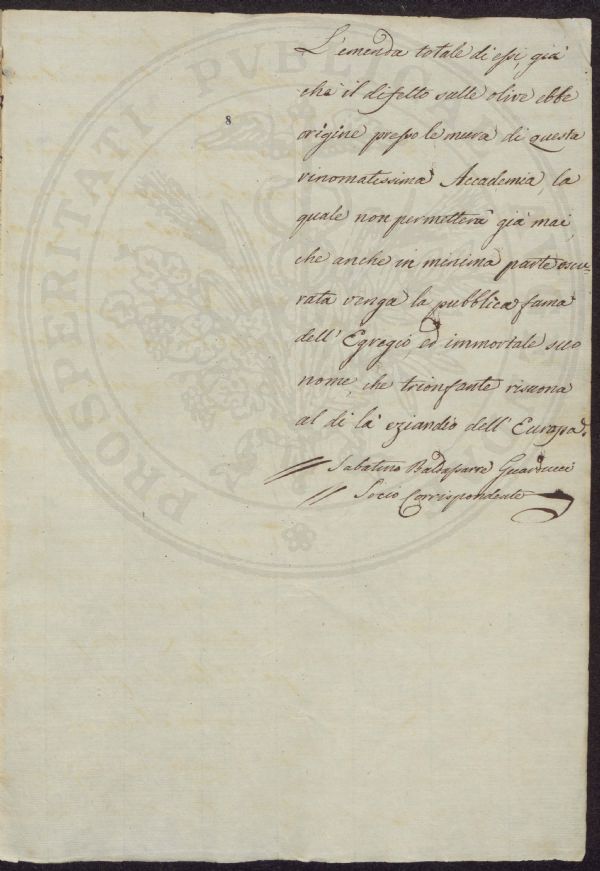 8
L'emenda totale di essi, già
chè il difetto sulle olive ebbe
origine presso le mura di questa
rinomatissima Accademia, la
quale non permetterà già mai,
che anche in menima parte oscu-
rata venga la pubblica fama
dell'Egregio ed immortale suo
nome, che trionfante risuona
al di là eziandio dell'Europa.
// Sabatino Baldassarre Guarducci
// Socio Corrispondente
PROSPERITATI PVBLICAE